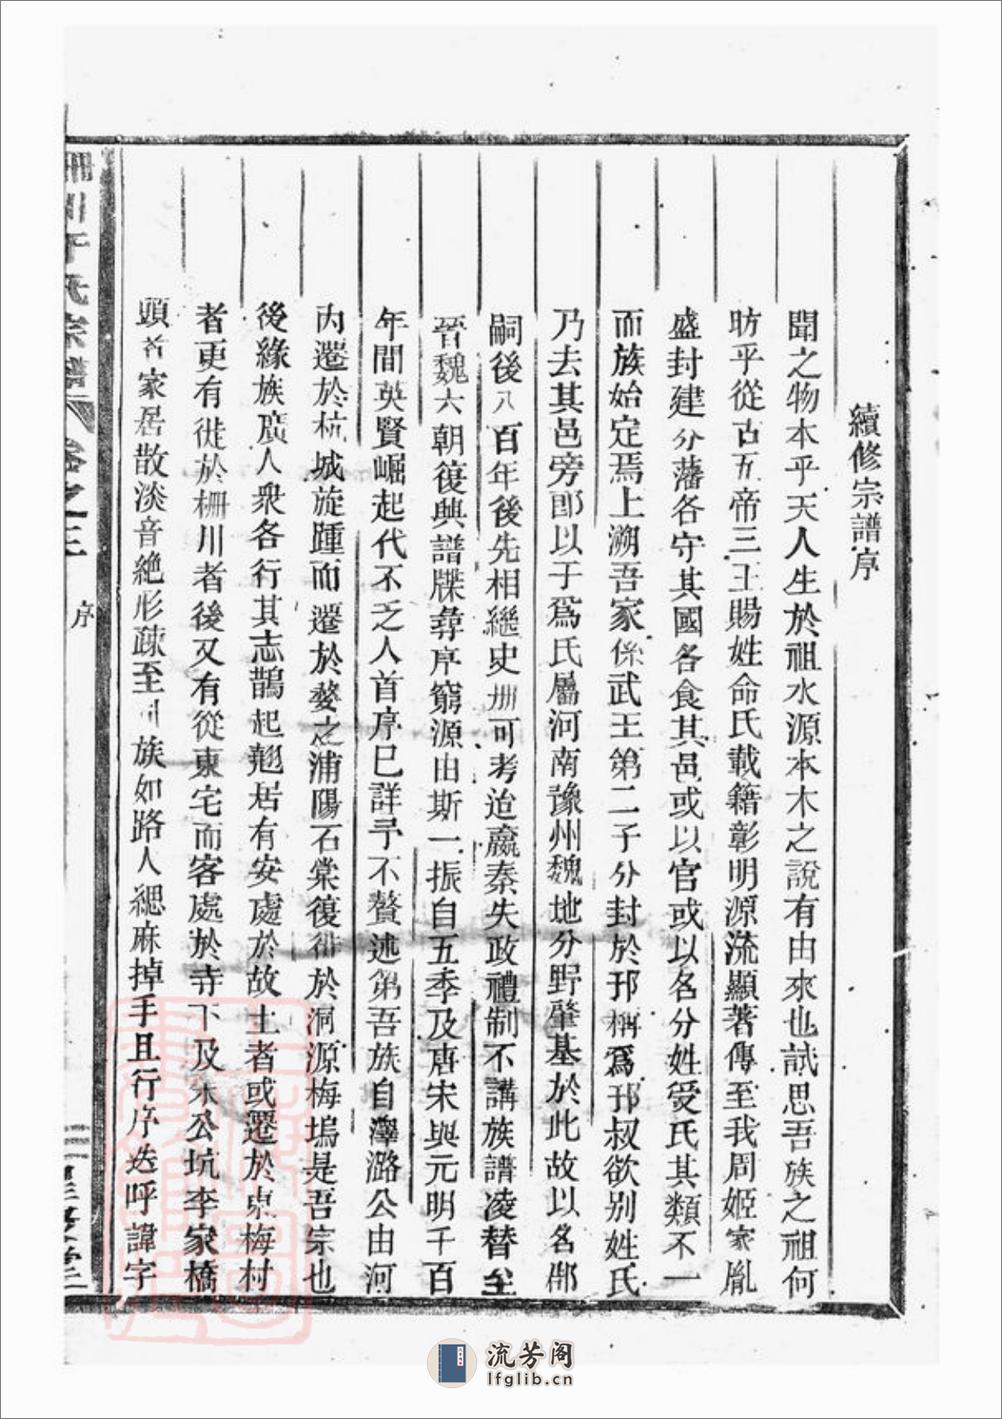 續修宗譜序
聞之物本乎天人生於祖水源本木之說有由來也試思吾族之祖何
昉乎從古五帝三王賜姓命氏載籍彰明源流顯著傳至我周姬家胤
盛封建分藩各守其國各食其邑或以官或以名分姓受氏其類不一
而族始定焉上溯吾家係武王第二子分封於邘稱爲邘叔欲別姓氏
乃去其邑旁卽以于爲氏屬河南豫州魏地分野肇基於此故以名郡
嗣後八百年後先相繼史冊可考迨嬴秦失政禮制不講族譜凌替至
晉魏六朝復興譜牒彝序窮源由斯一振自五季及唐宋與元明千百
年間英賢崛起代不乏人首序已詳予不贅述第吾族自澤潞公由河
內遷於杭城旋踵而遷於婺之浦陽石棠復徙於洞源梅塢是吾宗也
後緣族廣人衆各行其志鵲起翹居有安處於故土者或遷於泉梅村
者更有徙於柵川者後又有從東宅而客處於寺下及朱公坑李家橋
頭者家居散淡音絶形疎至 族如路人緦麻掉手且行序迭呼諱字
柵川于氏宗譜
卷之三
序